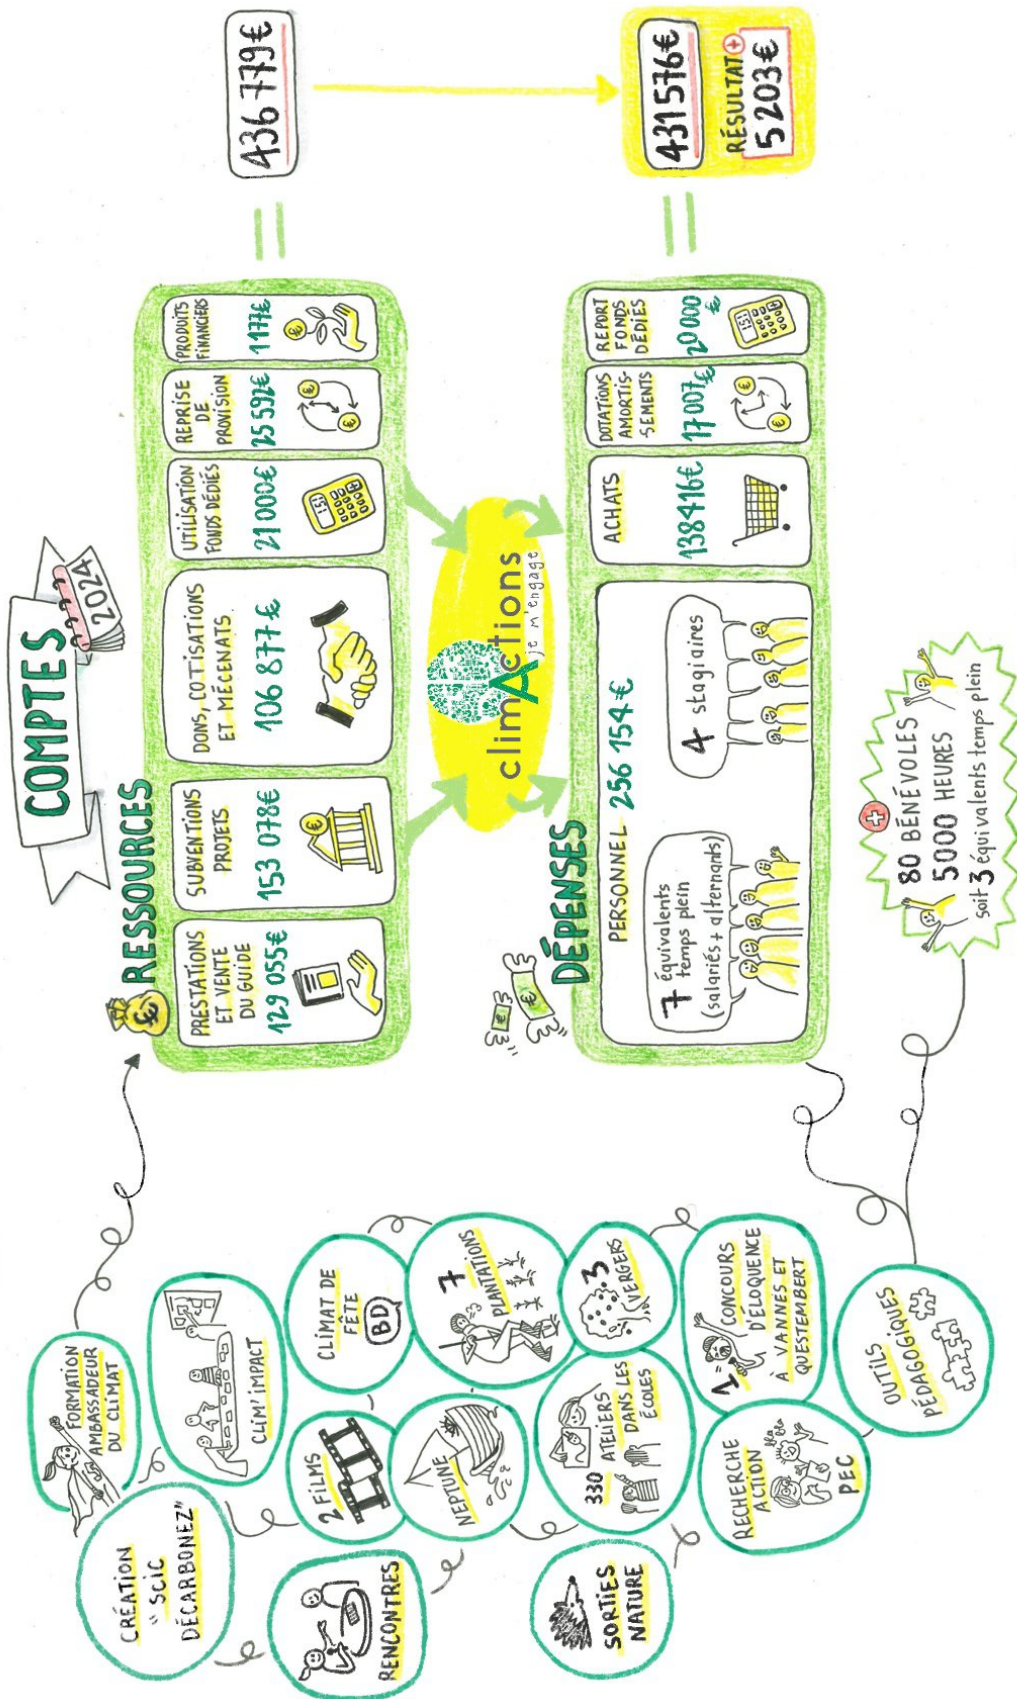 COMPTES
2024
RESSOURCES
PRESTATIONS
ET VENTE
DU GUIDE
129 055€
SUBVENTIONS
PROJETS
153 078€
DONS, COTISATIONS
ET MÉCÉNATS
106 877€
UTILISATION
FONDS DÉDIÉS
21 000€
REPRISE
DE
PROVISION
25 592€
PRODUITS
FINANCIERS
1177€
=
436 779€
climActions
je m'engage
DÉPENSES
PERSONNEL 256 154€
7 équivalents
temps plein
(salariés + alternants)
4 stagiaires
ACHATS
138 416€
DOTATIONS
AMORTIS-
SEMENTS
17 007€
REPORT
FONDS
DÉDIÉS
20 000
€
=
431 576€
RÉSULTAT +
5 203€
+
80 BÉNÉVOLES
5000 HEURES
soit 3 équivalents temps plein
FORMATION
AMBASSADEUR
DU CLIMAT
CRÉATION
"SCIC
DÉCARBONEZ"
CLIM' IMPACT
RENCONTRES
2 FILMS
CLIMAT DE
FÊTE
BD
NEPTUNE
7
PLANTATIONS
SORTIES
NATURE
330 ATELIERS
DANS LES
ÉCOLES
3
VERGERS
RECHERCHE
ACTION
Bla
Bla
PEC
1 CONCOURS
D'ÉLOQUENCE
À VANNES ET
QUESTEMBERT
OUTILS
PÉDAGOGIQUES